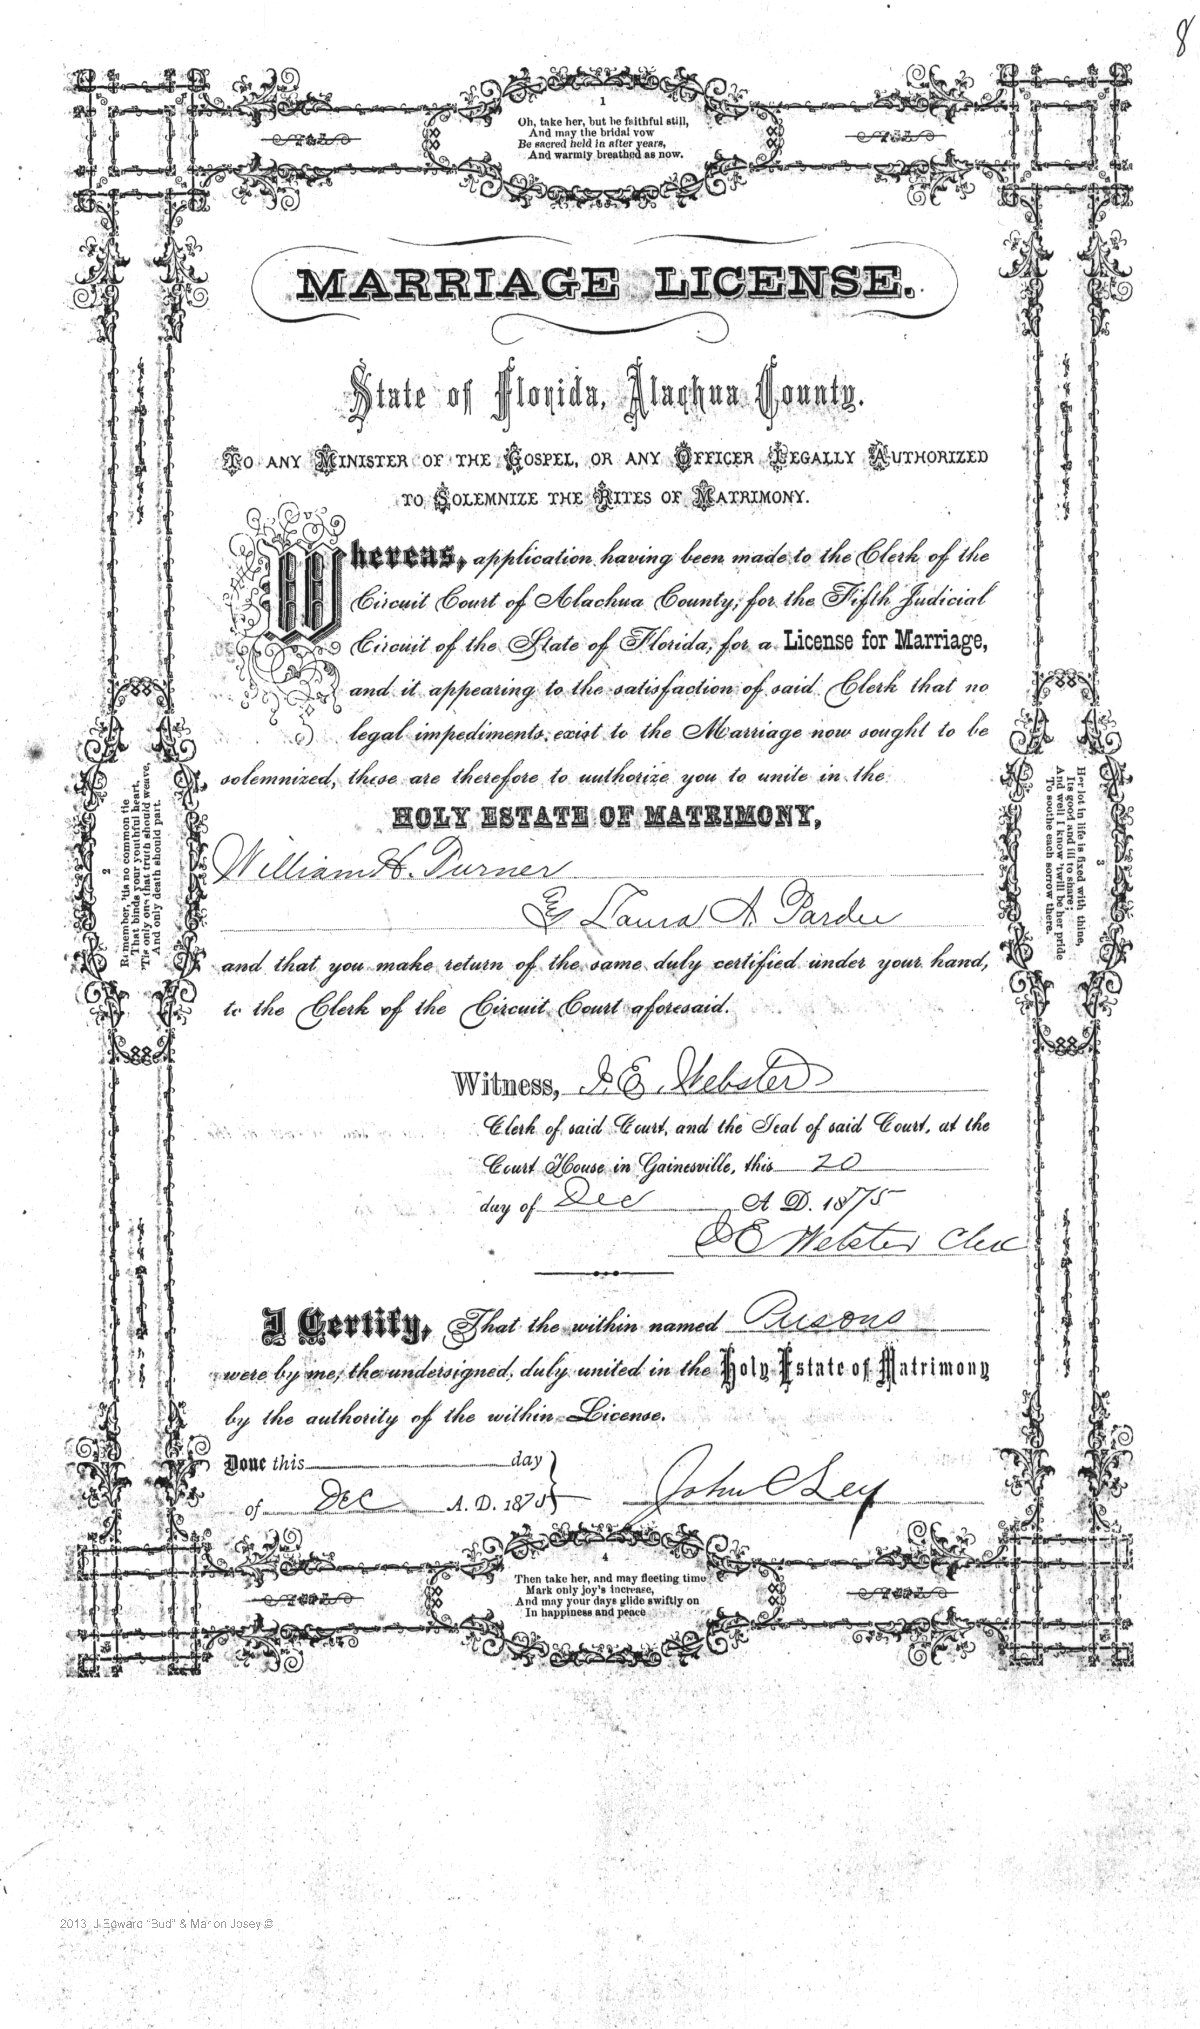 8
1
Oh, take her, but be faithful still,
And may the bridal vow
Be sacred held in after years,
And warmly breathed as now.
MARRIAGE LICENSE.
State of Florida, Alachua County.
TO ANY MINISTER OF THE GOSPEL, OR ANY OFFICER LEGALLY AUTHORIZED
TO SOLEMNIZE THE RITES OF MATRIMONY.
Whereas, application having been made to the Clerk of the
Circuit Court of Alachua County, for the Fifth Judicial
Circuit of the State of Florida, for a License for Marriage,
and it appearing to the satisfaction of said Clerk that no
legal impediments exist to the Marriage now sought to be
solemnized, these are therefore to authorize you to unite in the
HOLY ESTATE OF MATRIMONY,
William H. Turner
& Laura A Pardee
and that you make return of the same duly certified under your hand,
to the Clerk of the Circuit Court aforesaid.
2
Remember, 'tis no common tie
That binds your youthful heart,
'Tis only one that truth should weave,
And only death should part.
3
Her lot in life is fixed with thine,
Its good and ill to share;
And well I know 'twill be her pride
To soothe each sorrow there.
Witness, J. E. Webster
Clerk of said Court, and the Seal of said Court, at the
Court House in Gainesville, this 20
day of Dec A. D. 1875
J E Webster Clerk
I Certify, That the within named Persons
were by me, the undersigned, duly united in the Holy Estate of Matrimony
by the authority of the within License.
Done this day
of Dec A. D. 1875
John C Ley
4
Then take her, and may fleeting time
Mark only joy's increase,
And may your days glide swiftly on
In happiness and peace
2013 J Edward "Bud" & Marion Josey ©